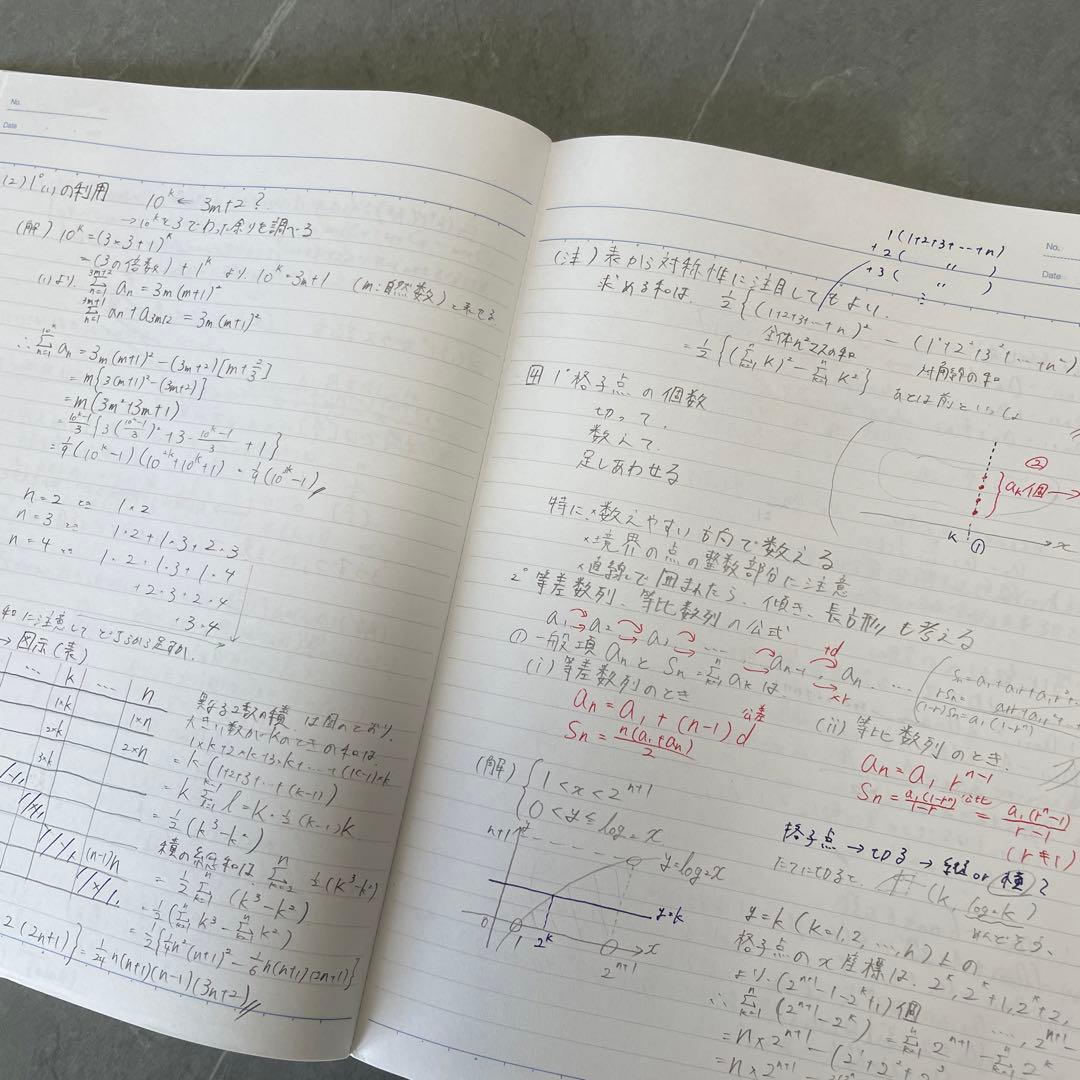 No.
Date
(2) 1°(1)の利用 10^k ← 3m+2?
→10^kを3でわった余りを調べる
(解) 10^k=(3×3+1)^k
=(3の倍数)+1^k より 10^k=3m+1 (m:自然数)と表せる.
(1)より. \sum_{n=1}^{3m+2} a_n = 3m(m+1)^2
\sum_{n=1}^{3m+1} a_n + a_{3m+2} = 3m(m+1)^2
∴ \sum_{n=1}^{10^k} a_n = 3m(m+1)^2-(3m+2)[m+\frac{2}{3}]
= m{3(m+1)^2-(3m+2)}
= m(3m^2+3m+1)
= \frac{10^k-1}{3}{3(\frac{10^k-1}{3})^2+3・\frac{10^k-1}{3}+1}
= \frac{1}{9}(10^k-1)(10^{2k}+10^k+1) = \frac{1}{9}(10^{3k}-1)
n=2 1×2
n=3 1・2+1・3+2・3
n=4 1・2+1・3+1・4
+2・3+2・4
+3・4
和に注意して
→ 図示(表)
… k … n
1×k 1×n
2×k 2×n
3×k
(n-1)n
異なる2数の積は図のとおり.
大きい数がkのときの和は
1×k+2×k+3×k+…+(k-1)×k
=k(1+2+3+…+(k-1))
=k \sum_{l=1}^{k-1} l = k・\frac{1}{2}(k-1)k
= \frac{1}{2}(k^3-k^2)
積の総和は \sum_{k=2}^{n} \frac{1}{2}(k^3-k^2)
= \frac{1}{2} \sum_{k=1}^{n} (k^3-k^2)
= \frac{1}{2}(\sum_{k=1}^{n} k^3 - \sum_{k=1}^{n} k^2)
= \frac{1}{2}{\frac{1}{4}n^2(n+1)^2-\frac{1}{6}n(n+1)(2n+1)}
2(2n+1)} = \frac{1}{24}n(n+1)(n-1)(3n+2)
No.
Date
1(1+2+3+…+n)
+2( 〃 )
+3( 〃 )
⋮
(注) 表から対称性に注目してもよい.
求める和は. \frac{1}{2}{(1+2+3+…+n)^2 - (1^2+2^2+3^2+…+n^2)
全体n^2マスの和 対角線の和
= \frac{1}{2}{(\sum_{k=1}^{n} k)^2 - \sum_{k=1}^{n} k^2} あとは前といっしょ
4 1°格子点の個数
切って,
数えて,
足しあわせる
② a_k個→
k ① x
特に,×数えやすい方向で数える
×境界の点の整数部分に注意
×直線で囲まれたら, 傾き, 長方形も考える
2°等差数列, 等比数列の公式
a_1 → a_2 → a_3 → … → a_{n-1} → a_n …
+d
×r
① 一般項 a_n と S_n = \sum_{k=1}^{n} a_k は
(i) 等差数列のとき
a_n = a_1+(n-1)d 公差
S_n = \frac{n(a_1+a_n)}{2}
S_n = a_1+a_1r+a_1r^2+
rS_n = a_1r+a_1r^2+
(1-r)S_n = a_1(1-r^n)
(ii) 等比数列のとき.
a_n = a_1 r^{n-1} 公比
S_n = \frac{a_1(1-r^n)}{1-r} = \frac{a_1(r^n-1)}{r-1}
(r≠1)
(解) {1<x<2^{n+1}
0<y≦log_2 x
n+1 y
y=log_2 x
y=k
0 1 2^k 2^{n+1} x
格子点→切る→縦or横?
たてに切ると, (k, log_2 k)
y=k (k=1,2,…,n)上の
格子点のx座標は, 2^k, 2^k+1, 2^k+2,
…, 2^{n+1}-
より, (2^{n+1}-1-2^k+1)個
∴ \sum_{k=1}^{n} (2^{n+1}-2^k) = \sum_{k=1}^{n} 2^{n+1} - \sum_{k=1}^{n} 2^k
= n×2^{n+1} - (2^1+2^2+2^3
= n×2^{n+1} -